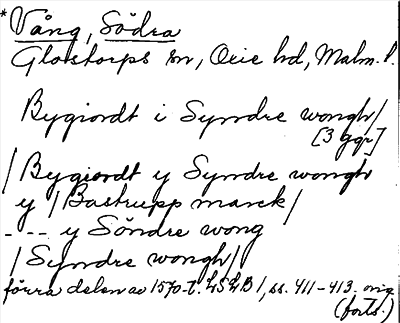 *Vång, Södra
Glostorps sn, Oxie hd, Malm. l.
Bygiordt i Syndre wongh/
[3 ggr]
/Bygiordt y Syndre wongh
y /Bastrupp marck/
--- y Söndre wong
/Syndre wongh/
förra delen av 1570-t. LSLB 1, ss. 411-413. orig
(forts.)